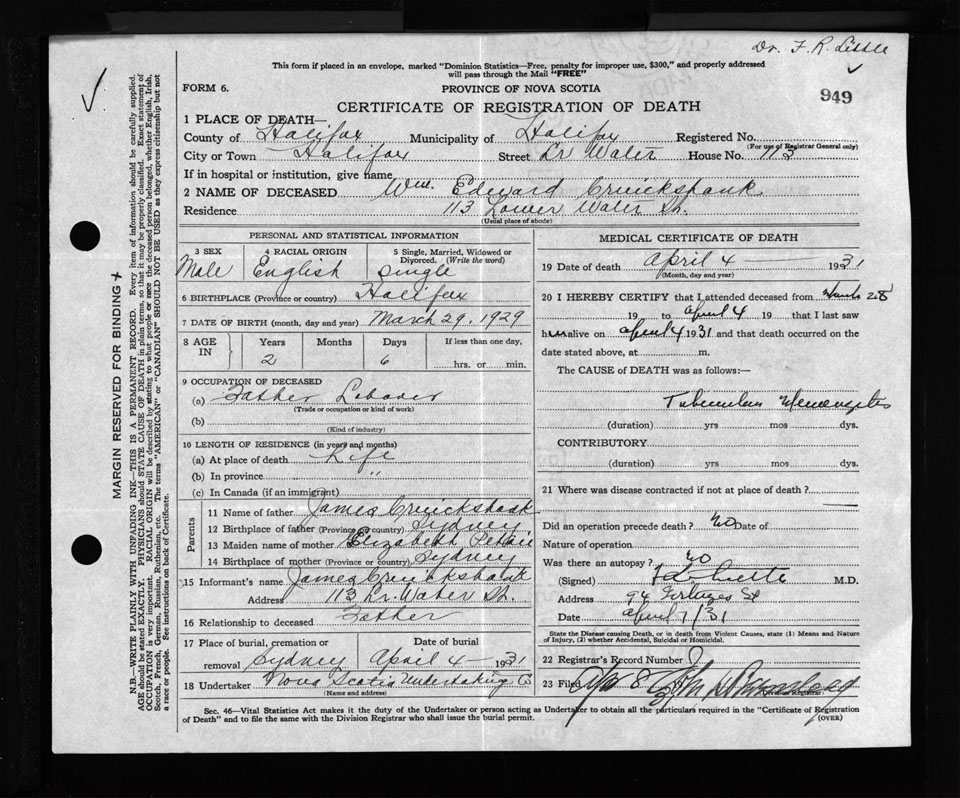 Dr. F. R. Little
This form if placed in an envelope, marked "Dominion Statistics—Free, penalty for improper use, $300," and properly addressed
will pass through the Mail "FREE"
FORM 6.
PROVINCE OF NOVA SCOTIA
949
CERTIFICATE OF REGISTRATION OF DEATH
1 PLACE OF DEATH—
County of Halifax Municipality of Halifax Registered No.
(For use of Registrar General only)
City or Town Halifax Street Lr Water House No. 113
If in hospital or institution, give name
2 NAME OF DECEASED Wm. Edward Cruickshank
Residence 113 Lower Water St.
(Usual place of abode)
PERSONAL AND STATISTICAL INFORMATION
3 SEX 4 RACIAL ORIGIN 5 Single, Married, Widowed or Divorced. (Write the word)
Male English Single
6 BIRTHPLACE (Province or country) Halifax
7 DATE OF BIRTH (month, day and year) March 29, 1929
8 AGE IN Years Months Days If less than one day,
2 6 hrs. or min.
9 OCCUPATION OF DECEASED
(a) Father Laborer
(Trade or occupation or kind of work)
(b)
(Kind of industry)
10 LENGTH OF RESIDENCE (in years and months)
(a) At place of death Life
(b) In province "
(c) In Canada (if an immigrant)
Parents
11 Name of father James Cruickshank
12 Birthplace of father (Province or country) Sydney
13 Maiden name of mother Elizabeth
14 Birthplace of mother (Province or country) Sydney
15 Informant's name James Cruickshank
Address 113 Lr. Water St.
16 Relationship to deceased Father
17 Place of burial, cremation or removal Sydney Date of burial April 4 1931
18 Undertaker Nova Scotia Undertaking Co
(Name and address)
MEDICAL CERTIFICATE OF DEATH
19 Date of death April 4 1931
(Month, day and year)
20 I HEREBY CERTIFY that I attended deceased from March 28
19 to April 4 19 that I last saw
him alive on April 4 1931 and that death occurred on the
date stated above, at m.
The CAUSE OF DEATH was as follows:—
Tubercular Meningitis
(duration) yrs mos dys.
CONTRIBUTORY
(duration) yrs mos dys.
21 Where was disease contracted if not at place of death?
Did an operation precede death? No Date of
Nature of operation
Was there an autopsy? No
(Signed) F R Little M.D.
Address 94 St
Date April 7/31
State the Disease causing Death, or in death from Violent Causes, state (1) Means and Nature
of Injury, (2) whether Accidental, Suicidal or Homicidal.
22 Registrar's Record Number
23 Filed Apr 8
Registrar
Sec. 46—Vital Statistics Act makes it the duty of the Undertaker or person acting as Undertaker to obtain all the particulars required in the "Certificate of Registration
of Death" and to file the same with the Division Registrar who shall issue the burial permit.
(OVER)
MARGIN RESERVED FOR BINDING +
N.B.—WRITE PLAINLY WITH UNFADING INK—THIS IS A PERMANENT RECORD. Every item of information should be carefully supplied.
AGE should be stated EXACTLY. PHYSICIANS should STATE CAUSE OF DEATH in plain terms, so that it may be properly classified. Exact statement of
OCCUPATION is very important. RACIAL ORIGIN will be described by stating to what people or race the deceased person belonged, whether English, Irish,
Scotch, French, German, Russian, Ruthenian, etc. The terms "AMERICAN" or "CANADIAN" SHOULD NOT BE USED as they express citizenship but not
a race or people. See instructions on back of Certificate.